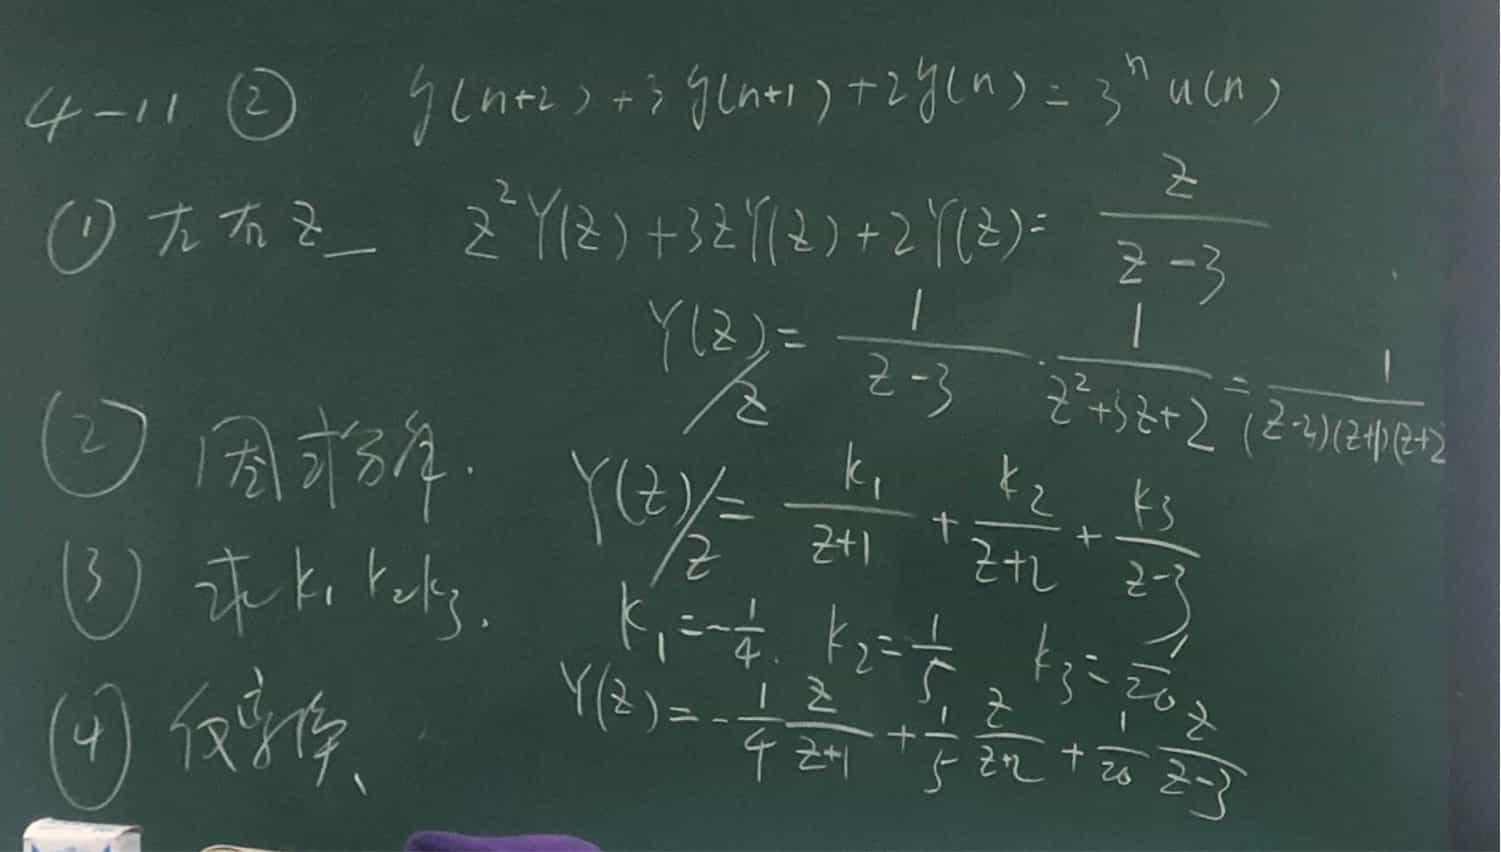 4-11 ② y(n+2)+3y(n+1)+2y(n)=3^n u(n)
① 左右Z_ z²Y(z)+3zY(z)+2Y(z)= z/(z-3)
Y(z)/z = 1/(z-3) · 1/(z²+3z+2) = 1/((z-3)(z+1)(z+2)
② 因式分解. Y(z)/z = k₁/(z+1) + k₂/(z+2) + k₃/(z-3)
③ 求k₁ k₂k₃. k₁=-1/4. k₂=1/5 k₃=1/20
④ 反变换、 Y(z)=-1/4 z/(z+1) + 1/5 z/(z+2) + 1/20 z/(z-3)